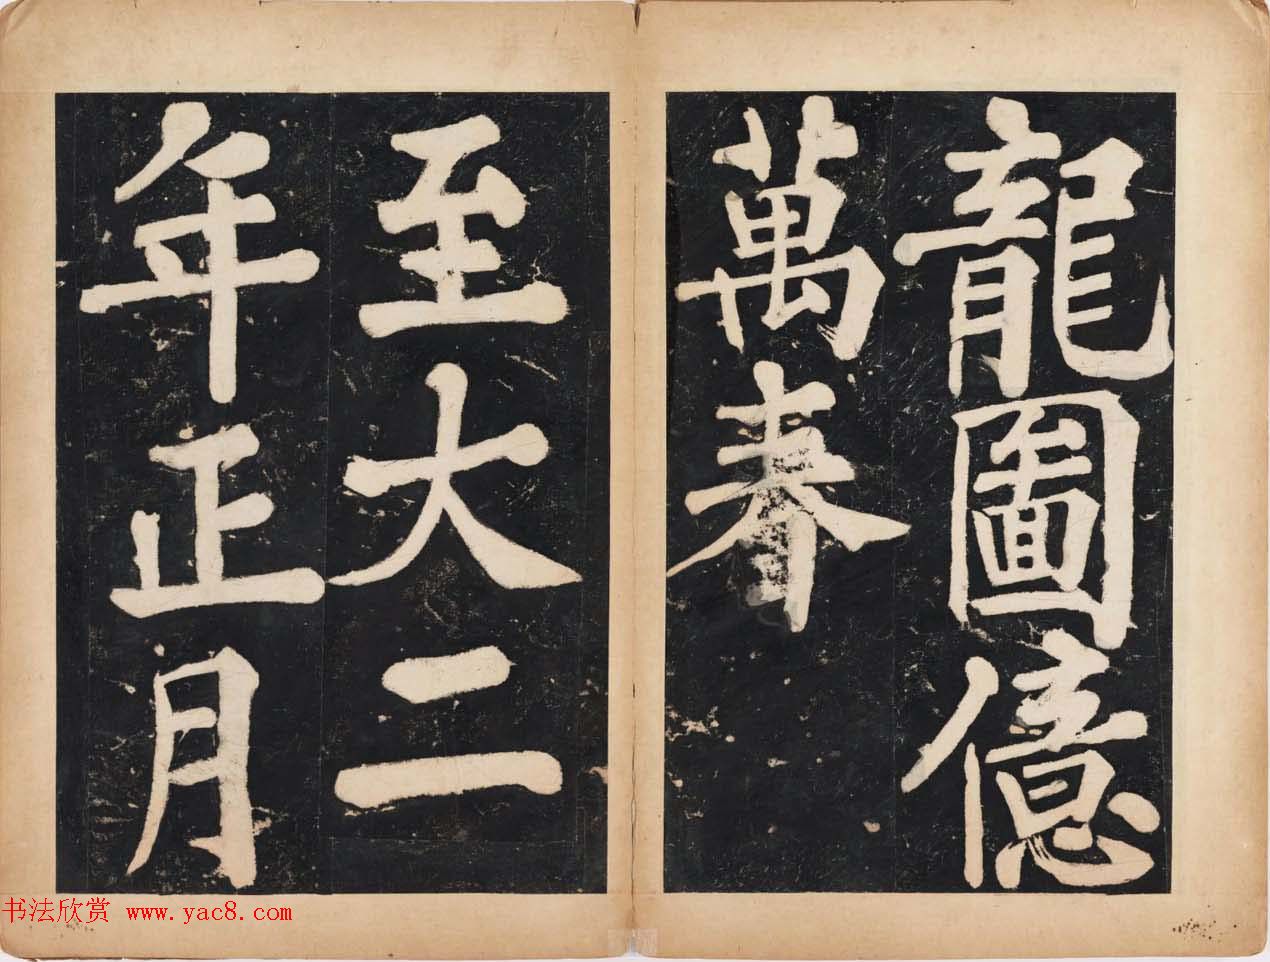 龍圖億
萬春
至大二
年正月
书法欣赏 www.yac8.com